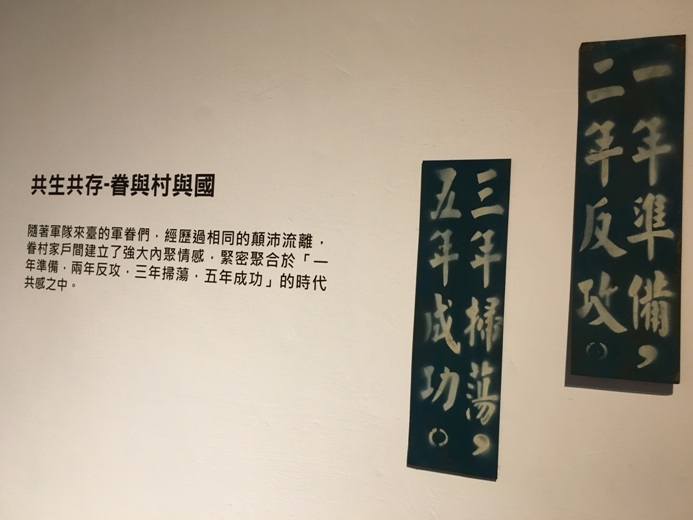 共生共存-眷與村與國
隨著軍隊來臺的軍眷們，經歷過相同的顛沛流離，
眷村家戶間建立了強大內聚情感，緊密聚合於「一
年準備，兩年反攻，三年掃蕩，五年成功」的時代
共感之中。
一年準備，
二年反攻。
三年掃蕩，
五年成功。